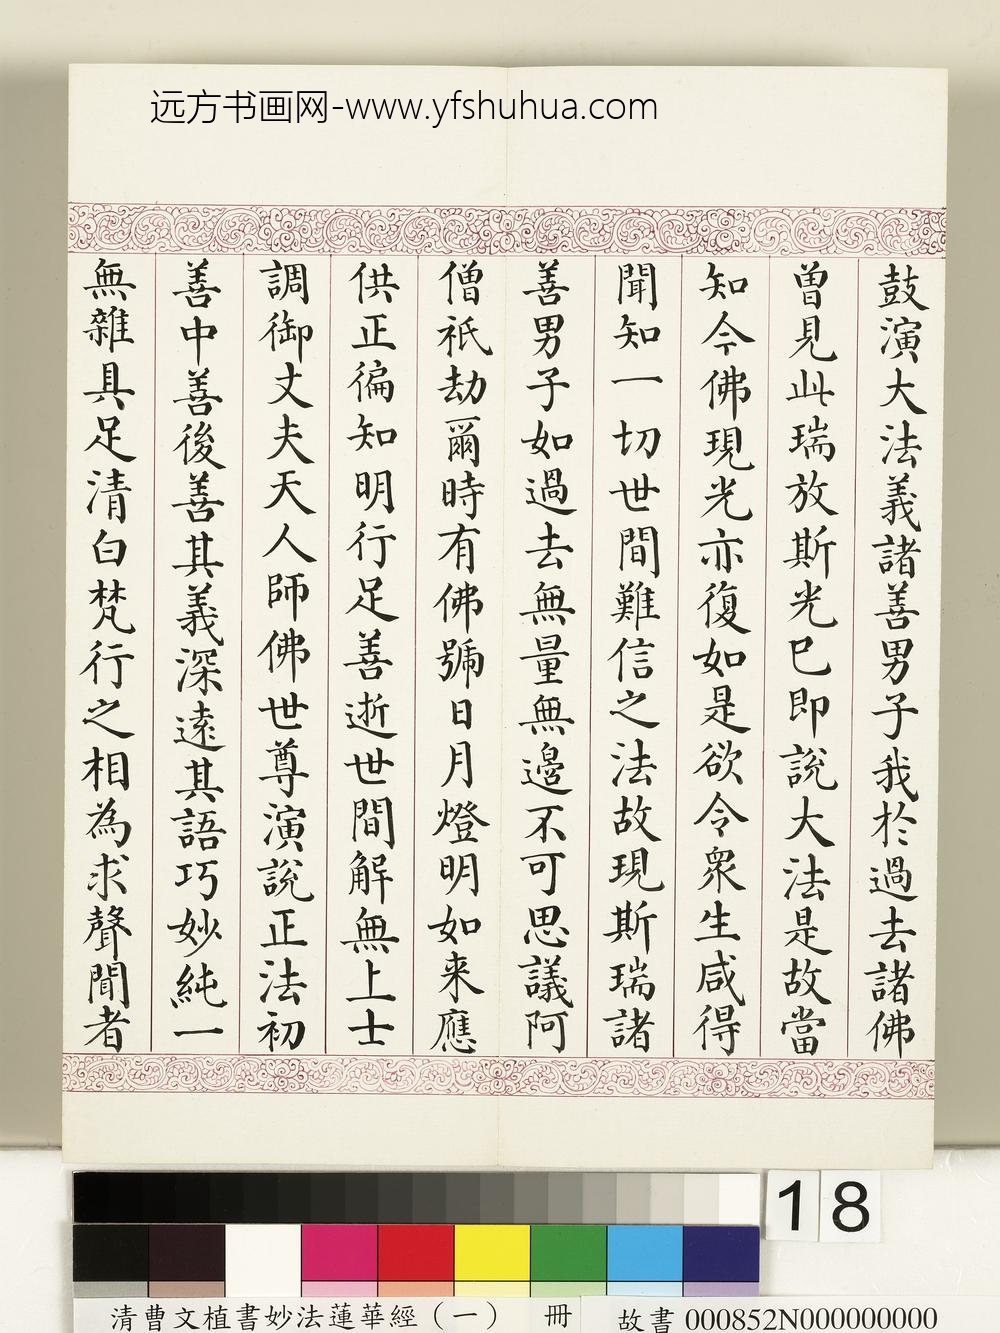 远方书画网-www.yfshuhua.com
鼓演大法義諸善男子我於過去諸佛
曾見此瑞放斯光已即說大法是故當
知今佛現光亦復如是欲令衆生咸得
聞知一切世間難信之法故現斯瑞諸
善男子如過去無量無邊不可思議阿
僧祇劫爾時有佛號日月燈明如来應
供正徧知明行足善逝世間解無上士
調御丈夫天人師佛世尊演說正法初
善中善後善其義深遠其語巧妙純一
無雜具足清白梵行之相為求聲聞者
18
清曹文植書妙法蓮華經(一) 冊
故書000852N000000000